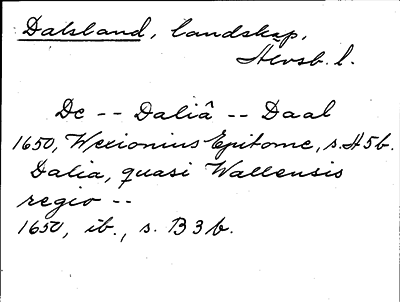 Dalsland, landskap,
Älvsb. l.
De -- Daliâ -- Daal
1650, Wexionius Epitome, s. H5b.
Dalia, quasi Wallensis
regio --
1650, ib., s. B3b.